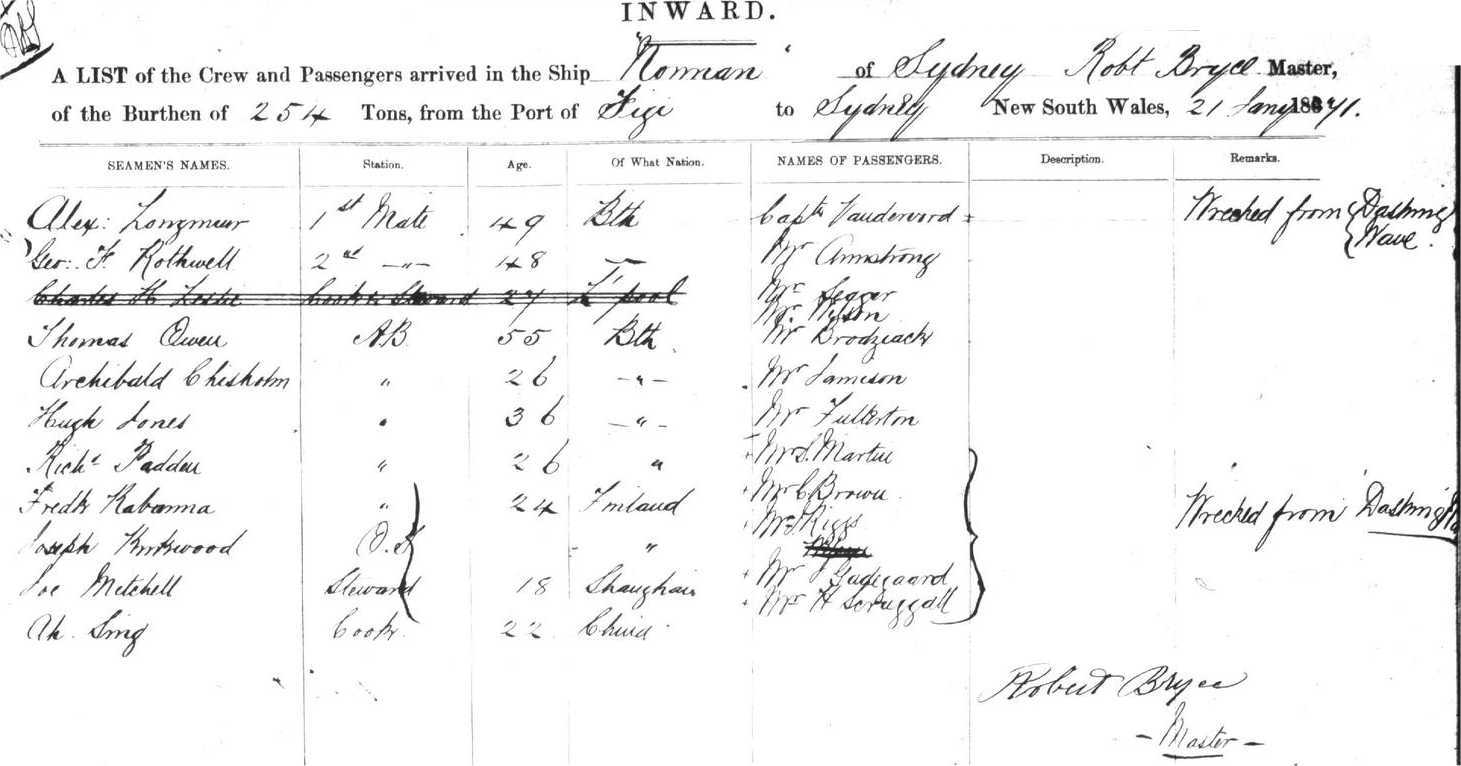 INWARD.
A LIST of the Crew and Passengers arrived in the Ship "Norman" of Sydney Robt Bryce Master,
of the Burthen of 254 Tons, from the Port of Figi to Sydney New South Wales, 21 Jany 1871.
SEAMEN'S NAMES. Station. Age. Of What Nation. NAMES OF PASSENGERS. Description. Remarks.
Alex: Longmuir 1st Mate 49 Bth Captn Vanderword Wrecked from { Dashing
Geo: F. Rothwell 2nd —"— 48 Mr Armstrong { Wave.
Charles H Leslie Cook & Steward 27 L'pool Mr Segger
Mr Wilson
Thomas Owen AB 55 Bth Mr Brodziack
Archibald Chisholm " 26 —"— Mr Jamison
Hugh Jones " 36 —"— Mr Fullerton
Richd Padden " 26 " Mr S. Martin
Fredk Kabanna " 24 Finland Mr C Brown Wrecked from Dashing
Mr Riggs
Joseph Kirkwood O.S "
Joe Mitchell Steward 18 Shanghai Mr J Gudegaard
Mr H Scruggall
Ah. Sing Cook 22 China
Robert Bryce
— Master —